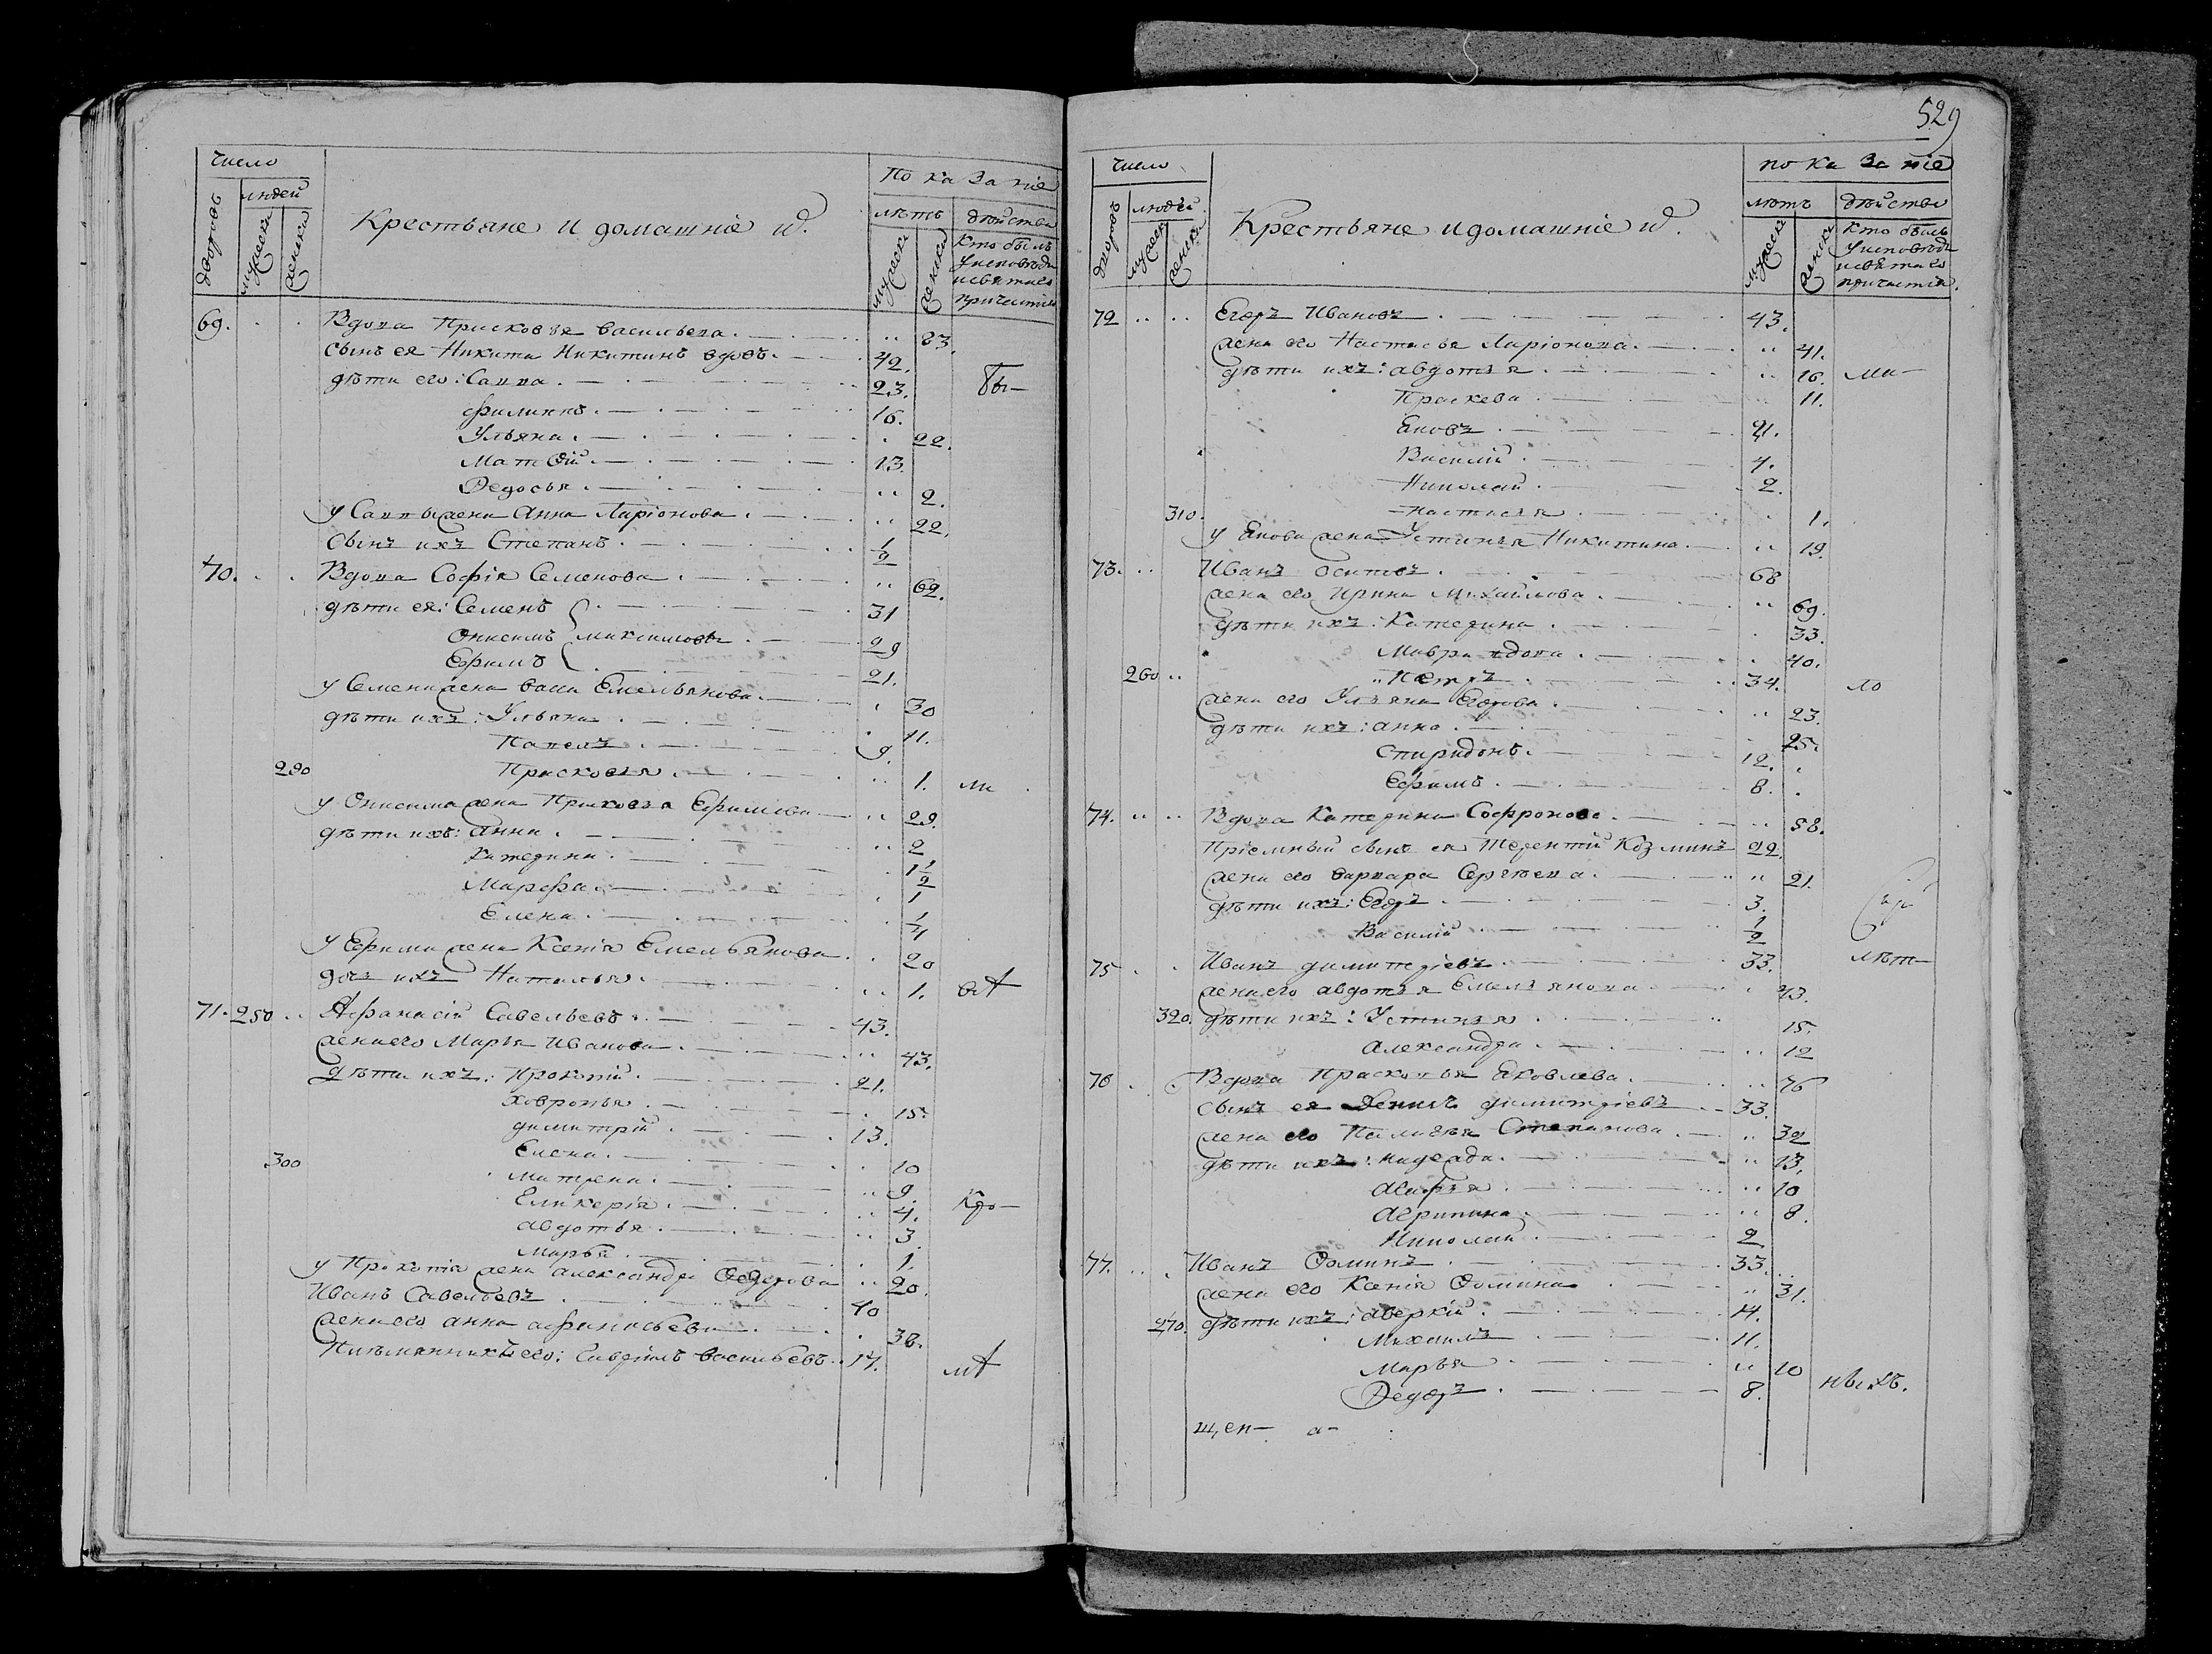 число
по ка за ніе
дворовъ
людей
мужеска
женска
Крестьяне и домашніе ихъ.
лѣтъ
дѣйства
мужеска
женска
кто былъ
у исповѣди
и святаго
причастія
69. Вдова Присковья Васильева. 83.
сынъ ея Никита Никитинъ вдовъ. 42.
дѣти его: Савва. 23. Бы-
Филиппъ. 16.
Ульяна. 22.
Матѳій. 13.
Ѳедосья. 2.
у Саввы жена Анна Ларіонова. 22.
Сынъ ихъ Степанъ. 1/2
70. Вдова Софія Семенова. 62.
дѣти ея: Семенъ 31
Онисимъ Максимовы 29
Ефимъ 21.
у Семена жена Васса Емельянова. 30
дѣти ихъ: Ульяна 11.
Павелъ 9.
290 Присковья. 1. ли
у Онисима жена Присковья Ефимова 29.
дѣти ихъ: Анна. 2
Катерина. 1 1/2
Марфа. 1
Елена. 1/4
у Ефима жена Ксенія Емельянова. 20
дочь ихъ Наталья. 1. вѣ
71. 250 Афанасій Савельевъ. 43.
жена его Марья Иванова. 43.
дѣти ихъ: Прокопій. 21.
Ховронья. 15.
Димитрій. 13.
300 Елена. 10
Матрена. 9.
Гликерія. 4. Кро-
Авдотья. 3.
Марья. 1.
у Прокопія жена Александра Ѳедорова 20.
Иванъ Савельевъ 40
жена его Анна Афанасьева 38.
Племянникъ его: Гаврiилъ Васильевъ. 17. мѣ
529
число
по ка за ніе
дворовъ
людей
мужеска
женска
Крестьяне и домашніе ихъ.
лѣтъ
дѣйства
мужеска
женска
кто былъ
у исповѣди
и святаго
причастія.
72 Егоръ Ивановъ 43.
жена его Настасья Ларіонова. 41.
дѣти ихъ: Авдотья. 16. ми-
Праскева 11.
Яковъ 21.
Василій. 4.
Николай. 2.
310. Настасья 1.
у Якова жена Устинья Никитина. 19.
73. Иванъ Осиповъ. 68
жена его Ирина Михайлова. 69.
дѣти ихъ: Катерина. 33.
Мавра вдова. 40.
260 Петръ 34. ло
жена его Ульяна Егорова. 23.
дѣти ихъ: Анна. 25.
Спиридонъ. 12.
Ефимъ. 8.
74. Вдова Катерина Софронова. 58.
Пріемный сынъ ея Терентій Козминъ 22.
жена его Варвара Сергѣева. 21.
дѣти ихъ: Егоръ 3.
Василій 1/2
75 Иванъ Димитріевъ. 33. лѣт-
жена его Авдотья Емельянова 43.
320. дѣти ихъ: Устинья 15.
Александра. 12
76 Вдова Прасковья Яковлева. 76
Сынъ ея Денисъ Димитріевъ 33.
жена его Палагѣя Степанова. 32
дѣти ихъ: Надежда. 13.
Агафья 10
Агрипина 8.
Николай 2.
77. Иванъ Ѳоминъ 33.
жена его Ксенія Ѳомина 31.
270. дѣти ихъ: Аверкій. 14.
Михаилъ 11.
Марья 10
Ѳедоръ. 8. ныхъ.
щен- а-